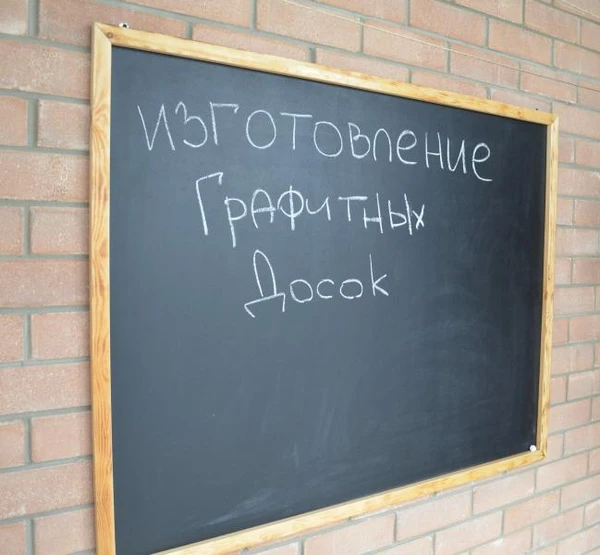 изготовление
Графитных
Досок